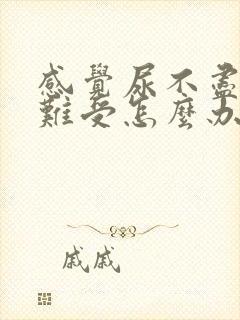 感覺尿不盡
難受怎麼办
戚戚